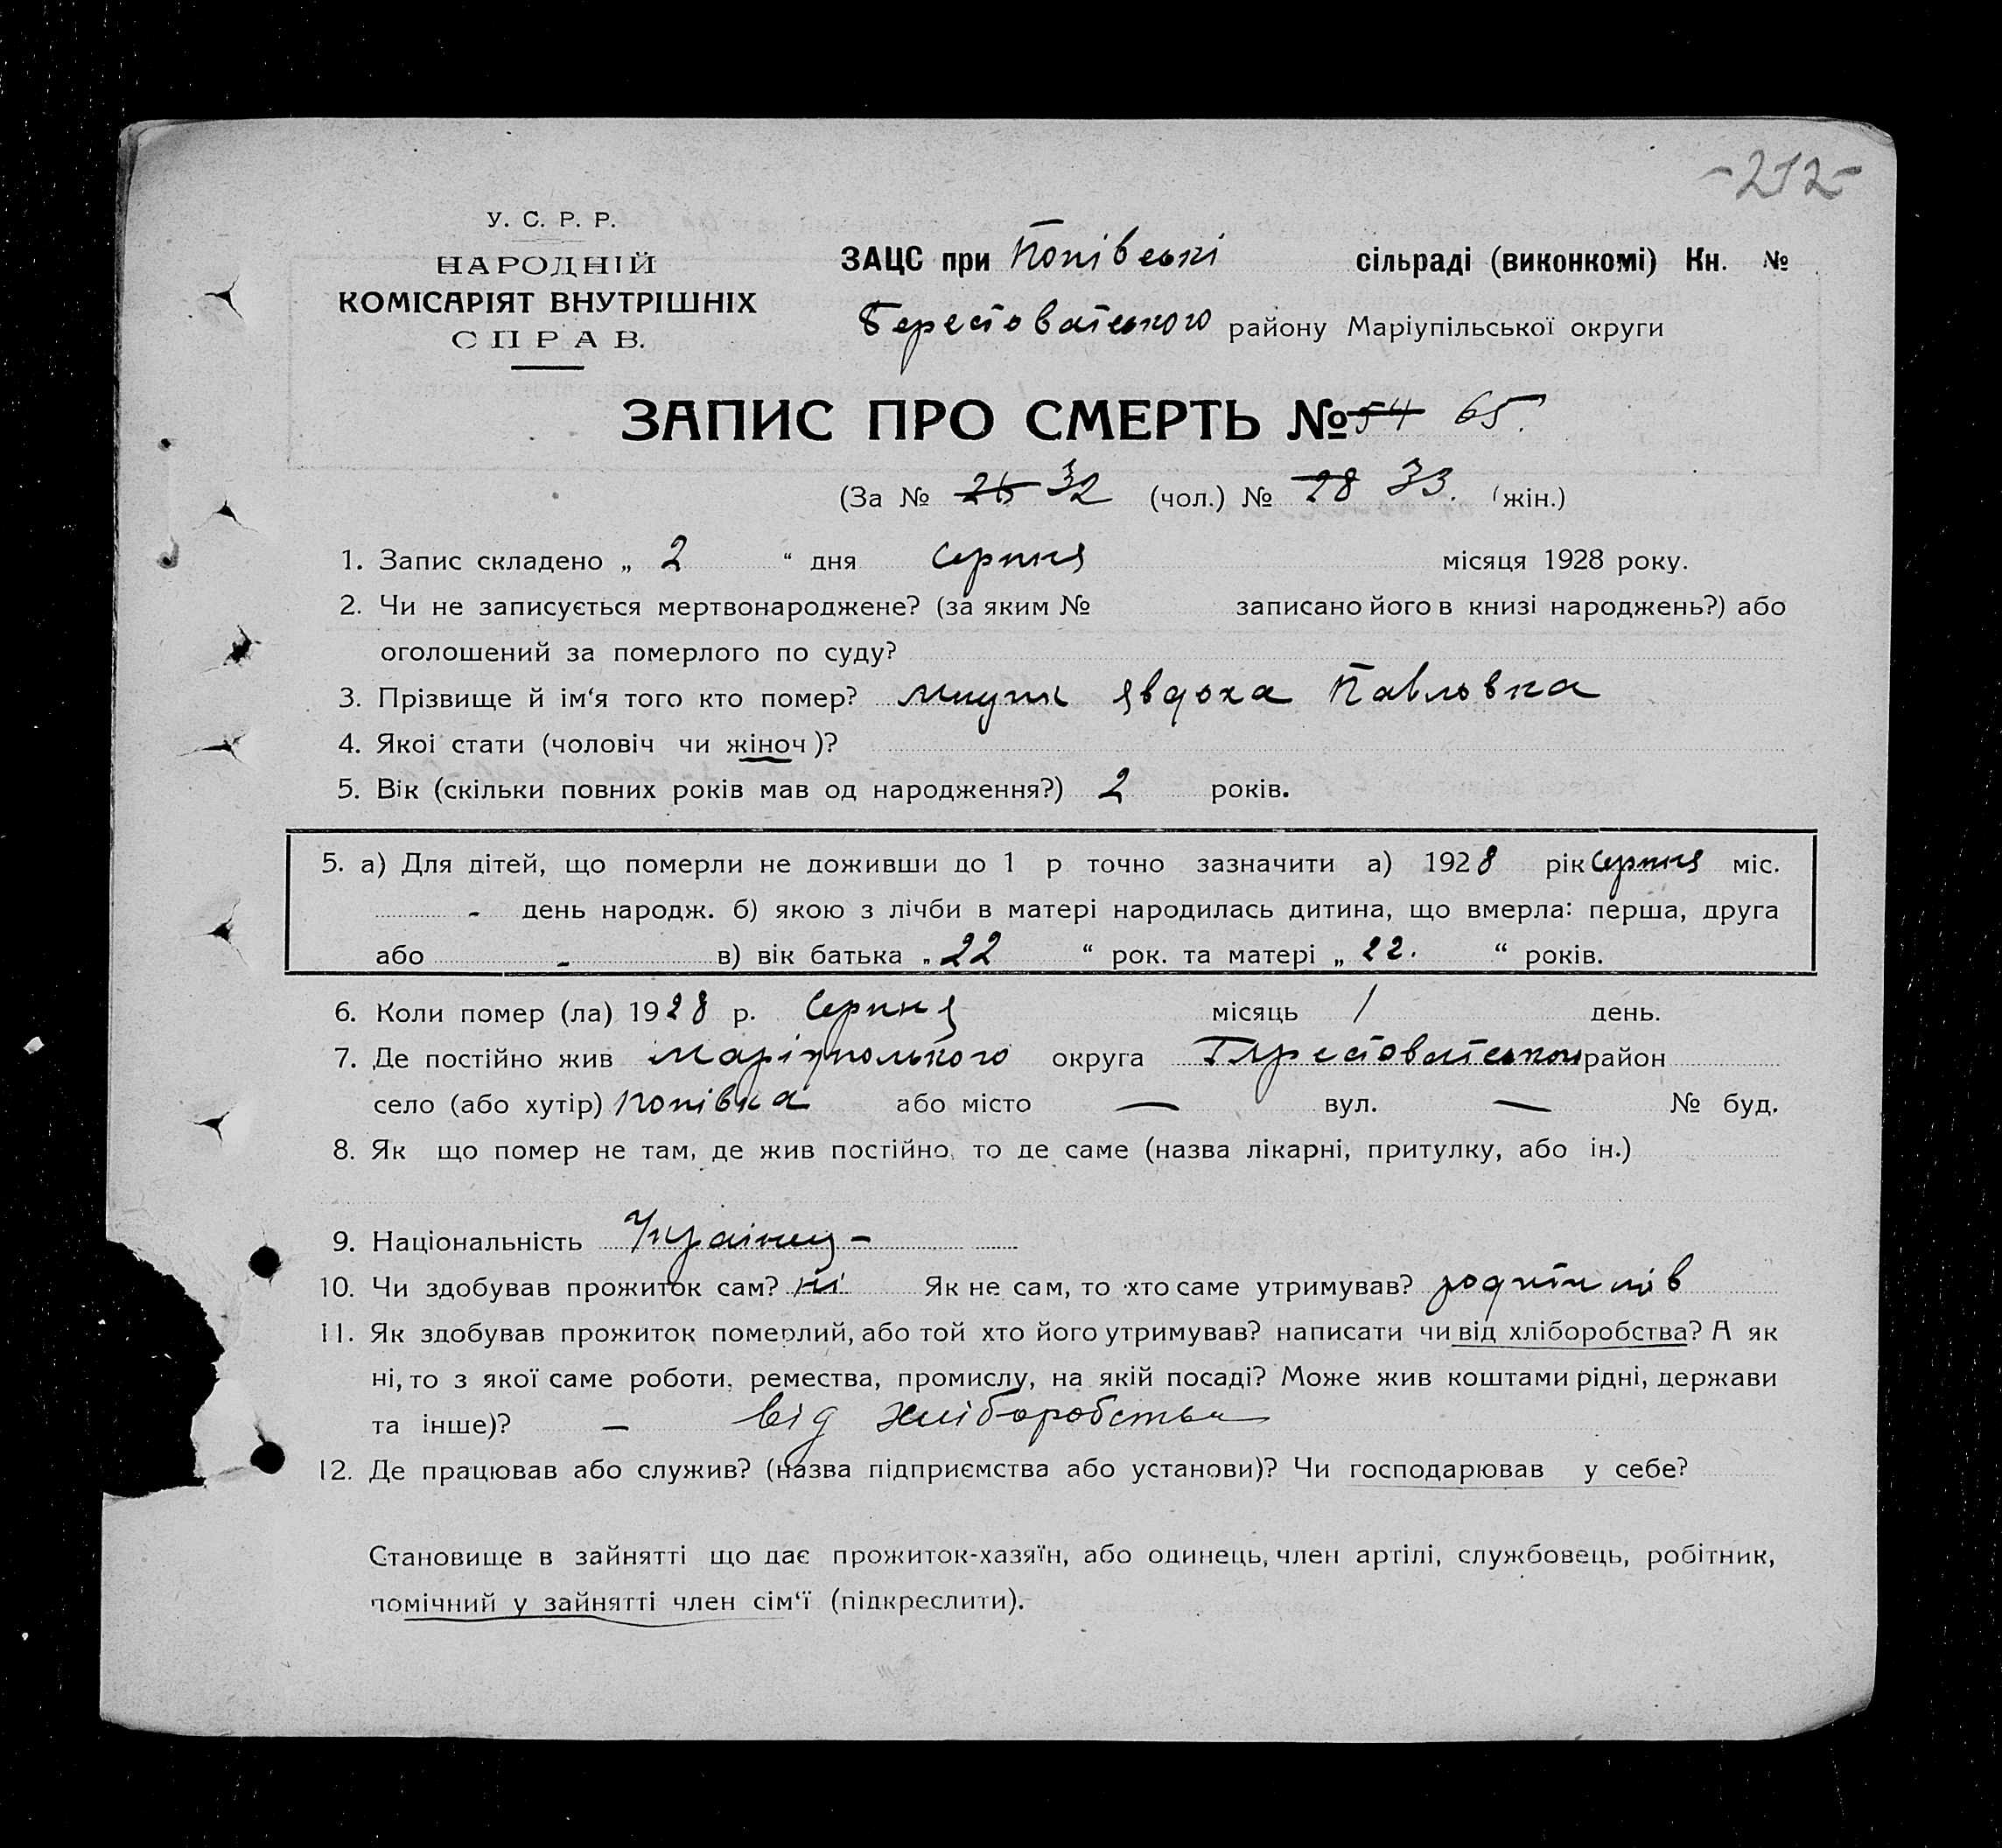 -212-
У. С. Р. Р.
НАРОДНІЙ
КОМІСАРІЯТ ВНУТРІШНІХ
СПРАВ.
ЗАЦС при Попівські сільраді (виконкомі) Кн. №
Берестоватського району Маріупільської округи
ЗАПИС ПРО СМЕРТЬ № 54 65.
(За № 26 32 (чол.) № 28 33. (жін.)
1. Запис складено „ 2 “ дня серпня місяця 1928 року.
2. Чи не записується мертвонароджене? (за яким № записано його в книзі народжень?) або
оголошений за померлого по суду?
3. Прізвище й ім‘я того кто помер? Явдоха Павловна
4. Якоі стати (чоловіч чи жіноч)?
5. Вік (скільки повних років мав од народження?) 2 років.
5. а) Для дітей, що померли не доживши до 1 р точно зазначити а) 1928 рік серпня міс.
- день народж. б) якою з лічби в матері народилась дитина, що вмерла: перша, друга
або - в) вік батька „ 22 “ рок. та матері „ 22. “ років.
6. Коли помер (ла) 1928 р. Серпня місяць 1 день.
7. Де постійно жив Маріупольского округа район
село (або хутір) Попівка або місто — вул. — № буд.
8. Як що помер не там, де жив постійно, то де саме (назва лікарні, притулку, або ін.)
9. Національність -
10. Чи здобував прожиток сам? ні Як не сам, то хто саме утримував?
11. Як здобував прожиток померлий, або той хто його утримував? написати чи від хліборобства? А як
ні, то з якої саме роботи, ремества, промислу, на якій посаді? Може жив коштами рідні, держави
та інше)? — від хліборобства
12. Де працював або служив? (назва підприємства або установи)? Чи господарював у себе?
Становище в зайнятті що дає прожиток-хазяїн, або одинець, член артілі, службовець, робітник,
помічний у зайнятті член сім‘ї (підкреслити).